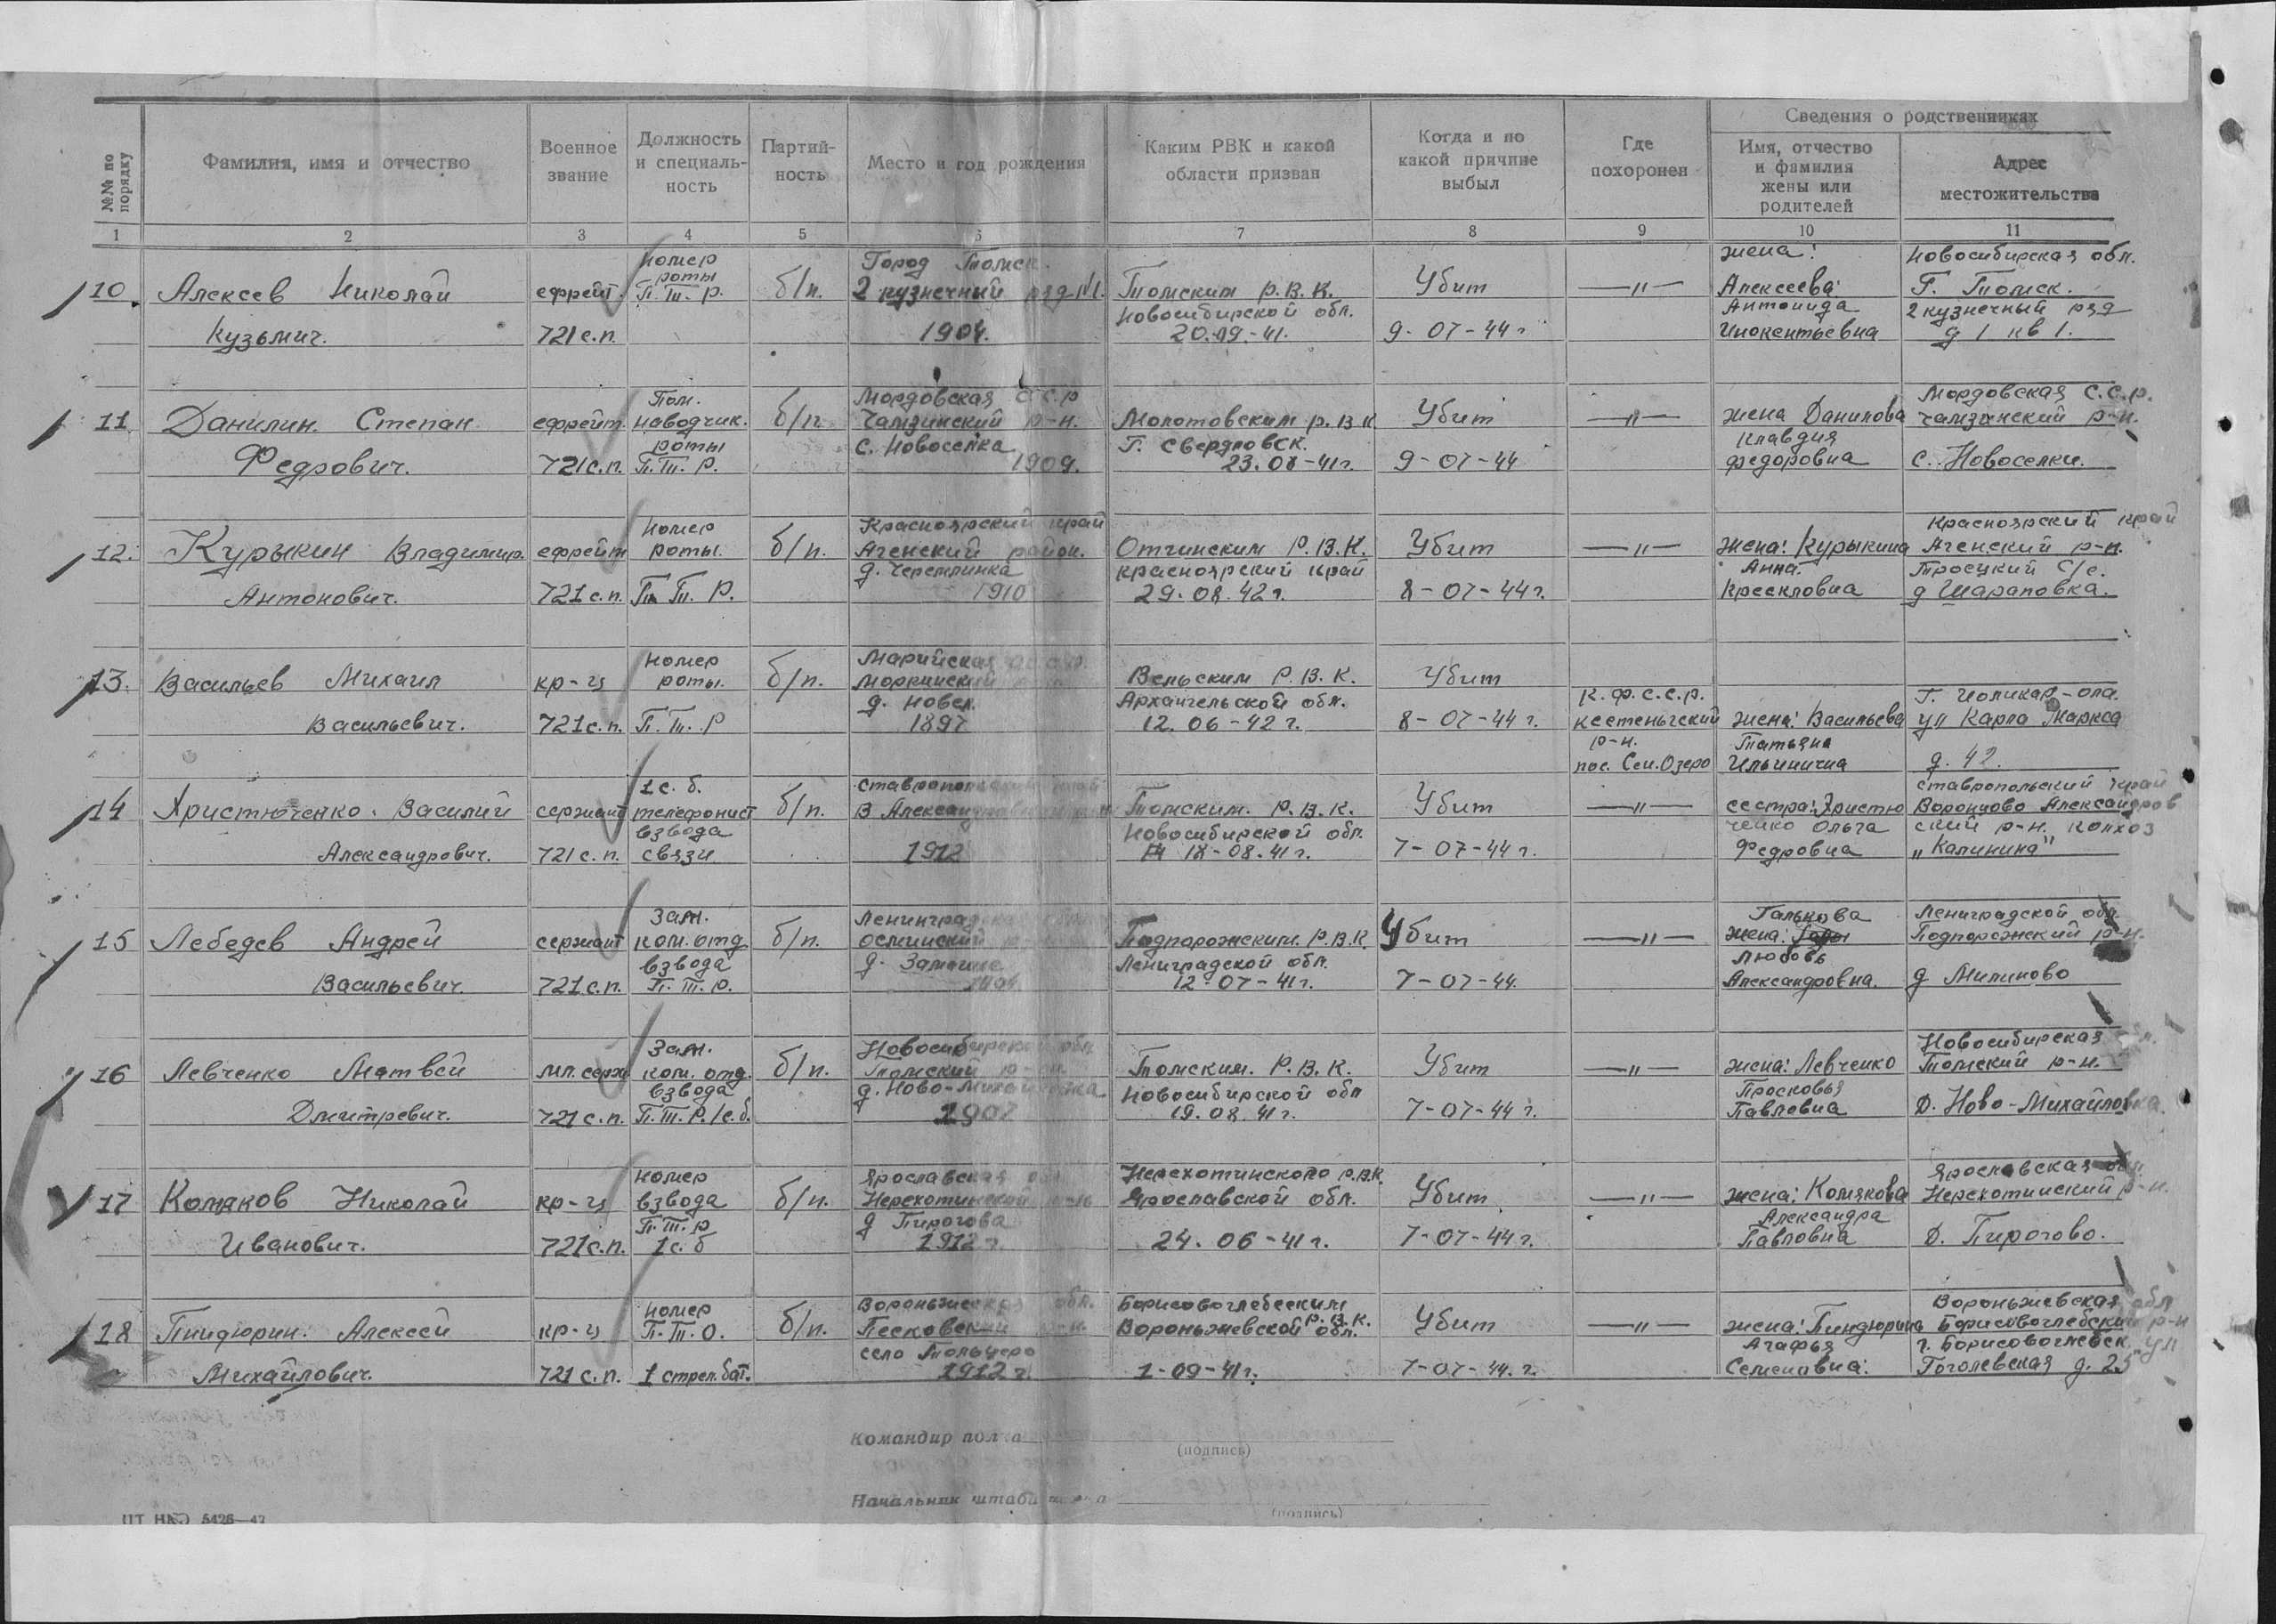 №№ по порядку
Фамилия, имя и отчество
Военное звание
Должность и специаль-ность
Партий-ность
Место и год рождения
Каким РВК и какой области призван
Когда и по какой причине выбыл
Где похоронен
Сведения о родственниках
Имя, отчество и фамилия жены или родителей
Адрес местожительства
1 2 3 4 5 6 7 8 9 10 11
номер Город Томск. жена: Новосибирская обл.
10. Алексеев Николай ефрейт. роты П.Т.Р. б/п. 2 кузнечный рзд №1. Томским Р.В.К. Убит —"— Алексеева Г. Томск.
Новосибирской обл. Антонида 2 кузнечный рзд
Кузьмич. 721 с.п. 1904. 20.09.-41. 9-07-44 г Инокентьевна д 1 кв 1.
Пом. Мордовская С.С.Р Мордовская С.С.Р.
11 Данилин. Степан ефрейт. наводчик. б/п Чамзинский р-н. Молотовским Р.В.К Убит —"— жена Данилова Чамзинский р-н.
роты с. Новоселка Г. Свердловск. Клавдия
Федрович. 721 с.п. П.Т.Р. 1909. 23.08-41г. 9-07-44 Федоровна с. Новоселки.
номер Красноярский край Красноярский край
12. Курыкин Владимир. ефрейт роты. б/п. Агенский район. Отчинским Р.В.К. Убит —"— жена: Курыкина Агенский р-н.
д. Черемлинка Красноярский край Анна. Троецкий С/с.
Антонович. 721 с.п. П.Т.Р. 1910 29.08.42г. 8-07-44г. Крескловна д Шараповка.
номер Марийская
13. Васильев Михаил кр-ц роты. б/п. Моркинский Вельским Р.В.К. Убит
д. Новск. Архангельской обл. К.Ф.С.С.Р. Г. Иошкар-ола.
Васильевич. 721 с.п. П.Т.Р 1897 12.06-42 г. 8-07-44 г. Кестеньгский жена: Васильева ул Карла Маркса
р-н. Татьяна
пос. Сен.Озеро Ильинична д. 42.
1 с.б. Ставропольский край Ставропольский край
14 Христюченко. Василий сержант телефонист б/п. В Александровский р-н Томским. Р.В.К. Убит —"— сестра: Христю Воронцово Александров
взвода Новосибирской обл. ченко Ольга ский р-н. колхоз
Александрович. 721 с.п. связи 1912 18-08.41г. 7-07-44 г. Федровна „Калинина"
Зам. Ленинградская Галькова Ленинградской обл.
15 Лебедев Андрей сержант ком. отд б/п. Осминский Подпорожским. Р.В.К. Убит —"— жена: Подпорожский р-н.
взвода д. Замошье Ленинградской обл. Любовь
Васильевич. 721 с.п. П.Т.Р. 12-07-41г. 7-07-44. Александровна. д Милиново
Зам. Новосибирской обл Новосибирская обл.
16 Левченко Матвей мл. серж ком. отд. б/п. Томский р-н Томским. Р.В.К. Убит —"— жена: Левченко Томский р-н.
взвода д. Ново-Михайловка Новосибирской обл Просковья
Дмитревич. 721 с.п. П.Т.Р. 1с.б. 1907 19.08.41г. 7-07-44 г. Павловна Д. Ново-Михайловка.
номер Ярославская обл Нерехотинского Р.В.К. Ярославская обл
17 Комяков Николай кр-ц взвода б/п. Нерехотинский Ярославской обл. Убит —"— жена: Комякова Нерехотинский р-н.
П.Т.Р д Пирогова Александра
Иванович. 721 с.п. 1 с.б 1912 г. 24.06-41г. 7-07-44 г. Павловна Д. Пирогово.
номер Вороньжеская обл. Борисовоглебским Вороньжевская обл
18 Пиидюрин. Алексей кр-ц П.Т.О. б/п. Песковский р-н. Р.В.К. Вороньжевской обл. Убит —"— жена: Пиндюрина Борисовоглебский р-н
село Агафья г. Борисовоглебск. ул
Михайлович. 721 с.п. 1 стрел.бат. 1912 г. 1-09-41г. 7-07-44.г. Семенавна: Гоголевская д. 25
Командир полка
(подпись)
Начальник штаба полка
(подпись)